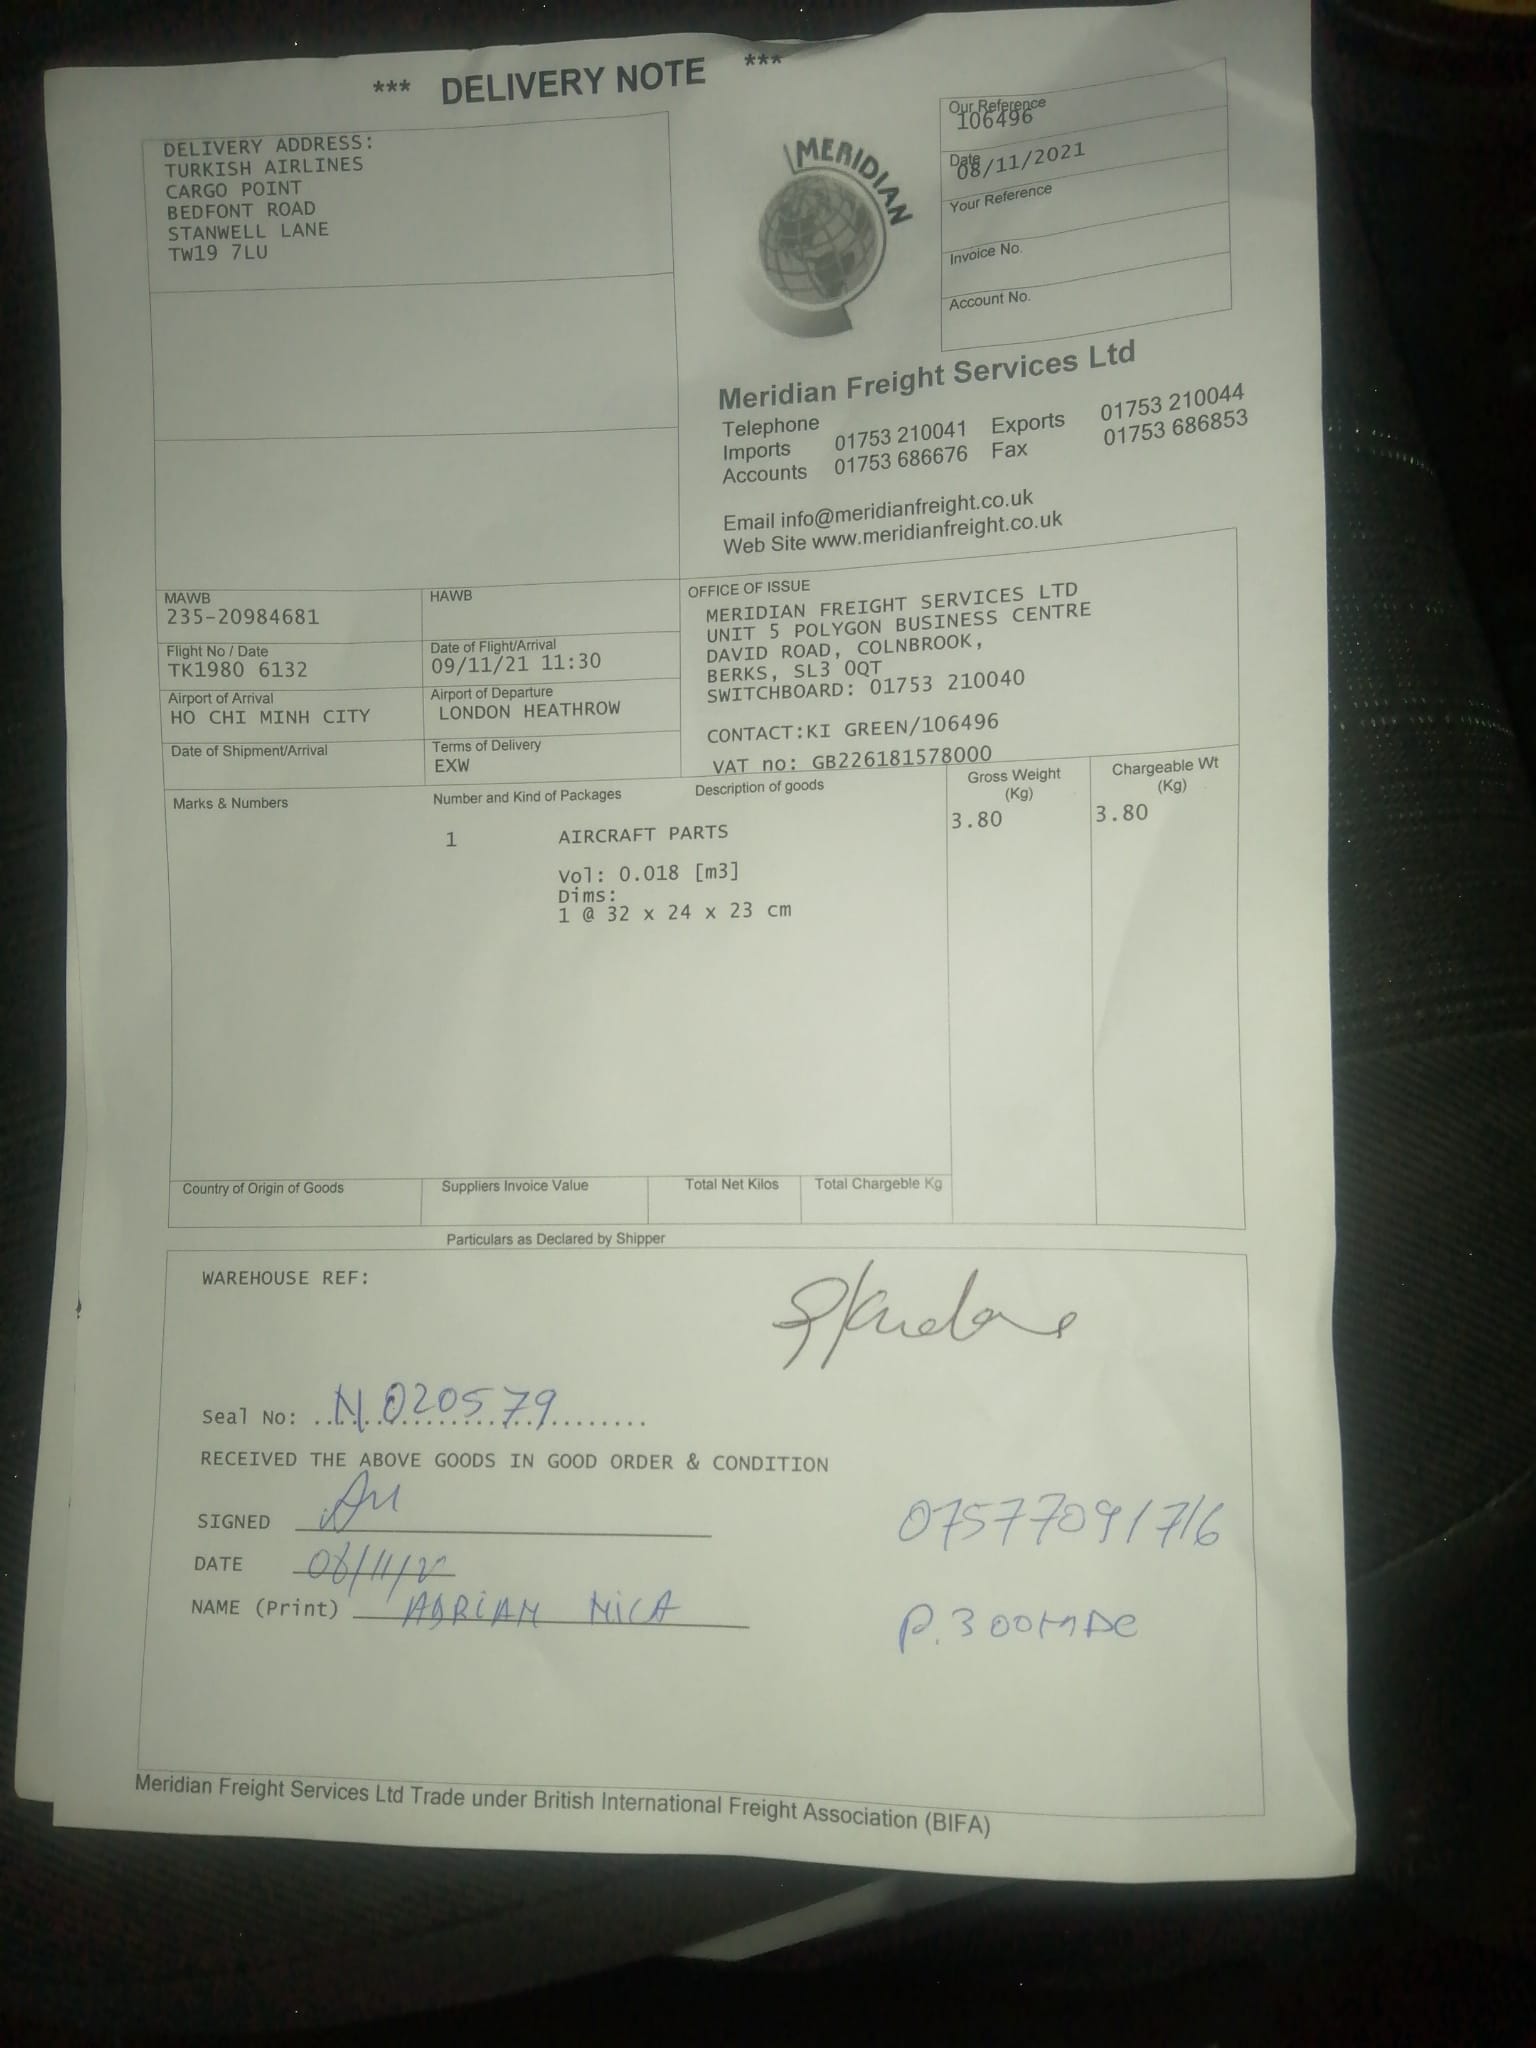 *** DELIVERY NOTE ***
DELIVERY ADDRESS:
TURKISH AIRLINES
CARGO POINT
BEDFONT ROAD
STANWELL LANE
TW19 7LU
MERIDIAN
Our Reference
106496
Date
08/11/2021
Your Reference
Invoice No.
Account No.
Meridian Freight Services Ltd
Telephone
Imports 01753 210041 Exports 01753 210044
Accounts 01753 686676 Fax 01753 686853
Email info@meridianfreight.co.uk
Web Site www.meridianfreight.co.uk
MAWB
235-20984681
HAWB
Flight No / Date
TK1980 6132
Date of Flight/Arrival
09/11/21 11:30
Airport of Arrival
HO CHI MINH CITY
Airport of Departure
LONDON HEATHROW
Date of Shipment/Arrival
Terms of Delivery
EXW
OFFICE OF ISSUE
MERIDIAN FREIGHT SERVICES LTD
UNIT 5 POLYGON BUSINESS CENTRE
DAVID ROAD, COLNBROOK,
BERKS, SL3 0QT
SWITCHBOARD: 01753 210040
CONTACT:KI GREEN/106496
VAT no: GB226181578000
Marks & Numbers
Number and Kind of Packages
Description of goods
Gross Weight
(Kg)
Chargeable Wt
(Kg)
1 AIRCRAFT PARTS 3.80 3.80
Vol: 0.018 [m3]
Dims:
1 @ 32 x 24 x 23 cm
Country of Origin of Goods
Suppliers Invoice Value
Total Net Kilos
Total Chargeble Kg
Particulars as Declared by Shipper
WAREHOUSE REF:
Seal No: N 020579
RECEIVED THE ABOVE GOODS IN GOOD ORDER & CONDITION
SIGNED
07577091716
DATE 08/11/21
NAME (Print) ADRIAN MICA
Meridian Freight Services Ltd Trade under British International Freight Association (BIFA)